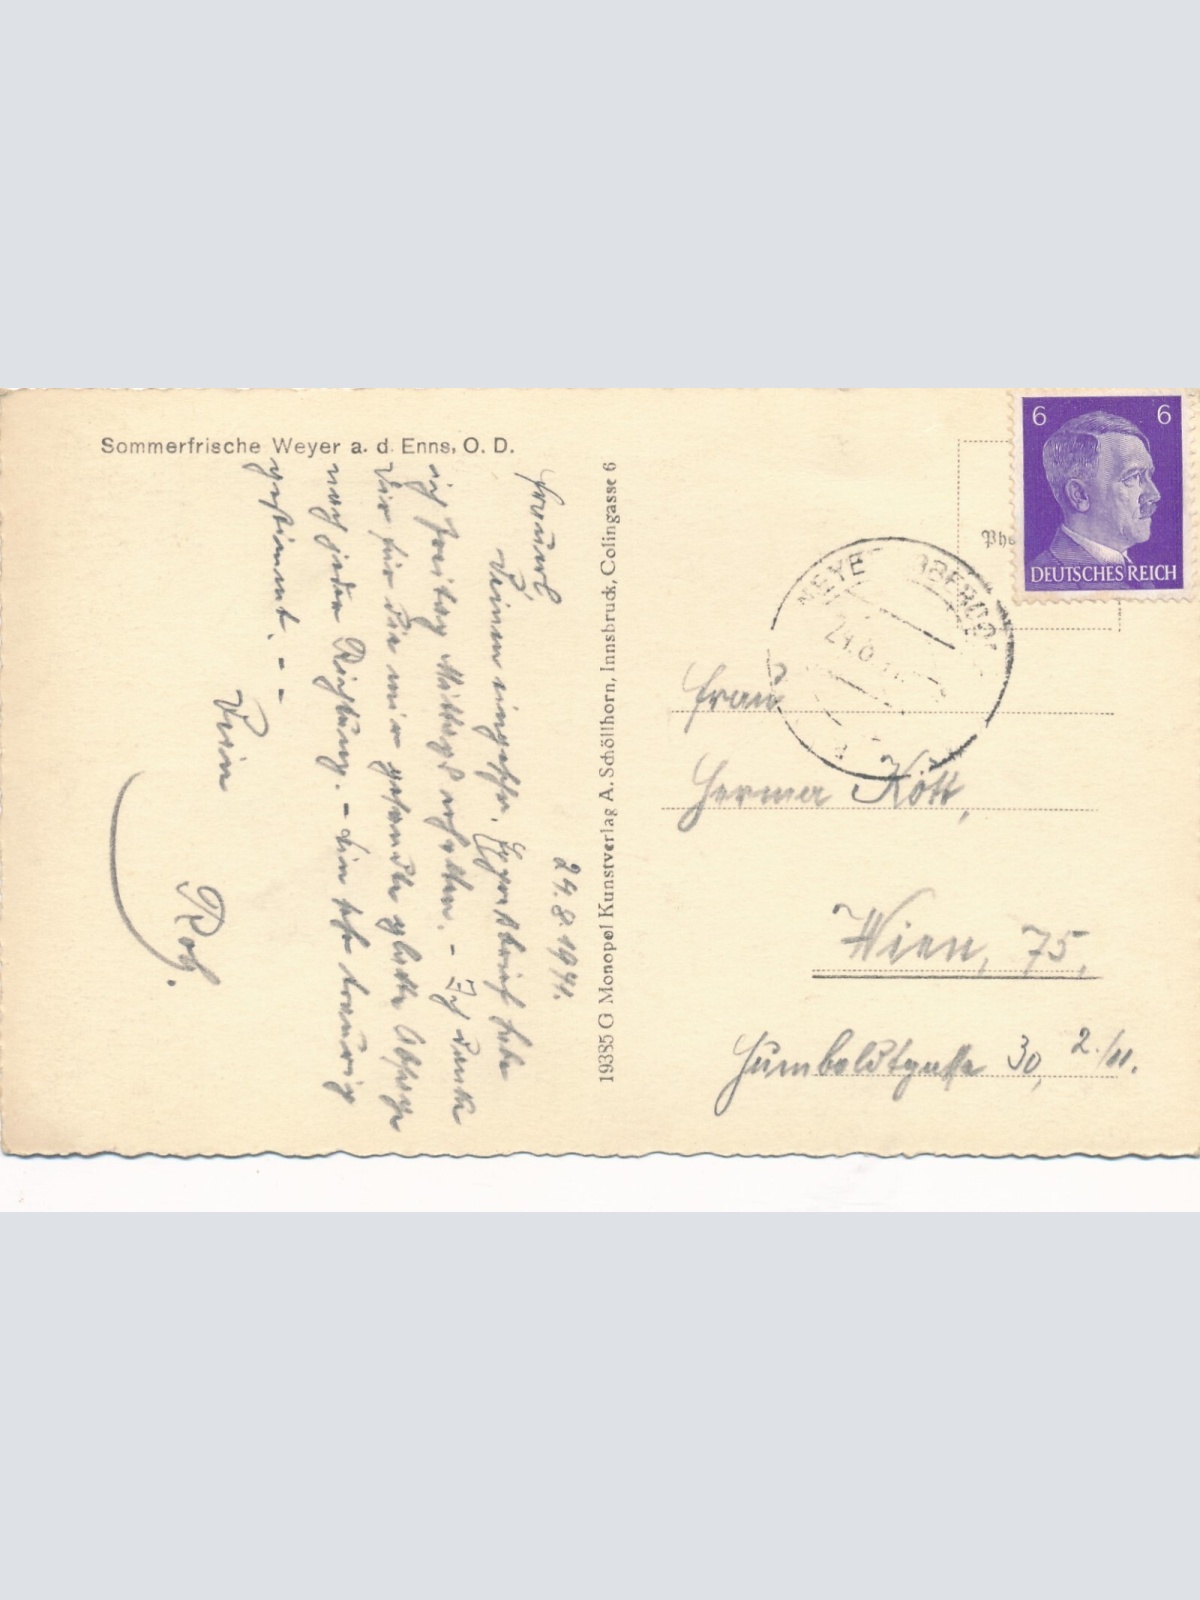 Sommerfrische Weyer a. d. Enns, O. D.
24.8.1941.
Frauerl,
Deinen eingeschr. Expressbrief habe
ich Freitag Mittags erhalten. – Ich danke
Dir für die mir gesandte
nach jeder Richtung. – Bin sehr traurig
gestimmt. – –
Dein
Rob.
19385 G Monopol Kunstverlag A. Schöllhorn, Innsbruck, Colingasse 6
6 6
DEUTSCHES REICH
Pho
WEYER
Frau
Herma Kött,
Wien, 75,
Humboldtgasse 30, 2./11.